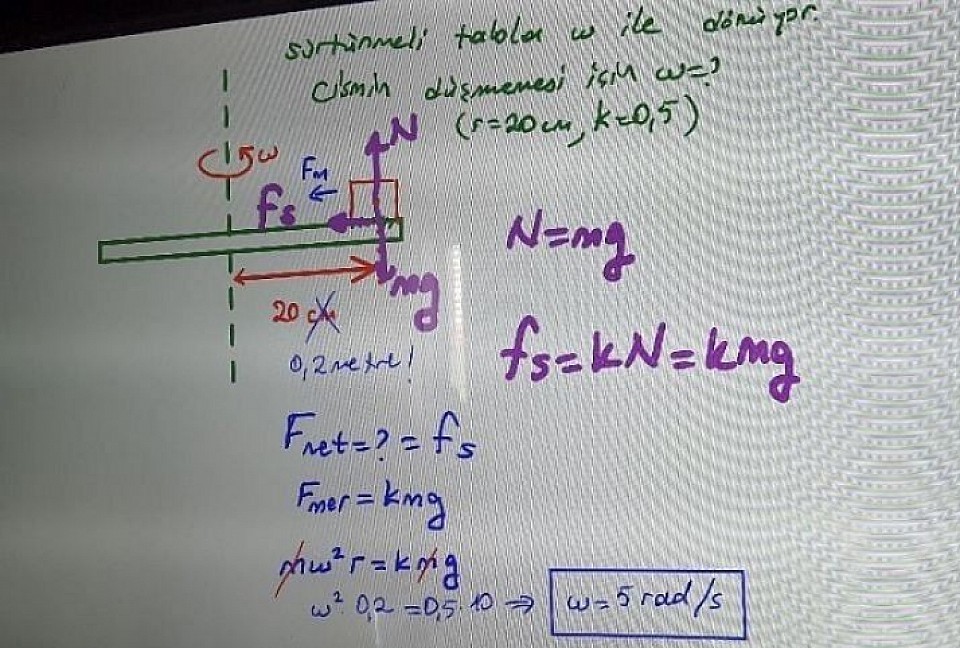 sürtünmeli tabla w ile dönüyor.
Cismin düşmemesi için w=?
(r=20cm, k=0,5)
N
w
Fm
fs
N=mg
mg
20 cm
0,2 metre!
fs=kN=kmg
Fnet=?=fs
Fmer=kmg
mw²r=kmg
w². 0,2=0,5.10 ⇒ w=5 rad/s